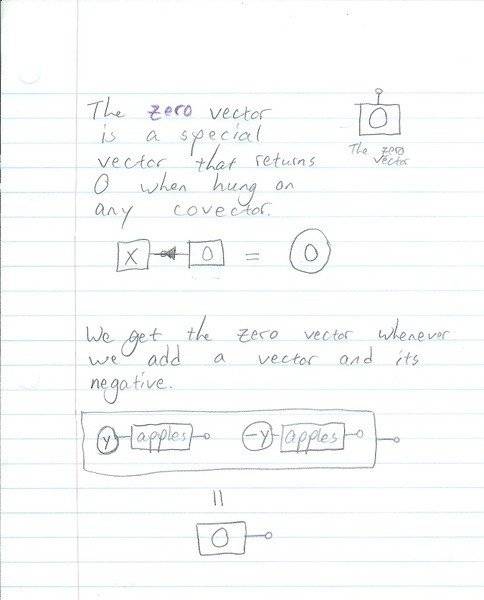 The zero vector
is a special
vector that returns
0 when hung on
any covector.
0
The zero
vector
X 0 = 0
We get the zero vector whenever
we add a vector and its
negative.
y apples -y apples
=
0